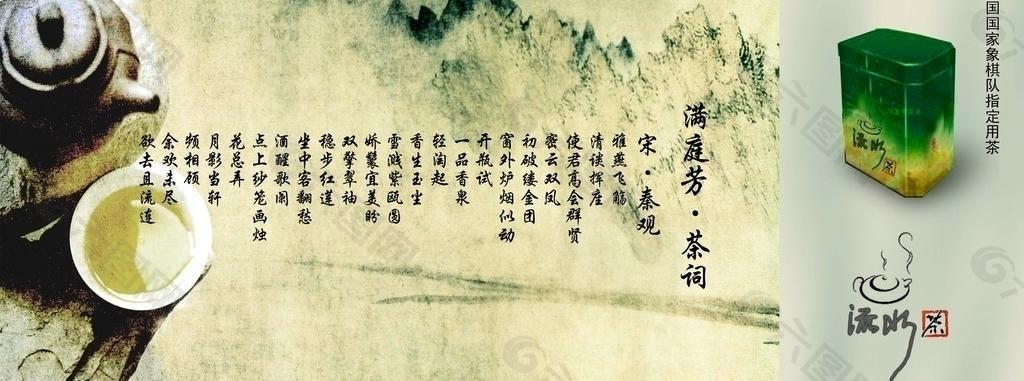 国国家象棋队指定用茶
满庭芳·茶词
宋·秦观
雅燕飞觞
清谈挥座
使君高会群贤
密云双凤
初破缕金团
窗外炉烟似动
开瓶试
一品香泉
轻淘起
香生玉尘
雪溅紫瓯圆
娇鬟宜美盼
双擎翠袖
稳步红莲
坐中客翻愁
酒醒歌阑
点上纱笼画烛
花总弄
月影当轩
频相顾
余欢未尽
欲去且流连
流水
茶
流水
茶